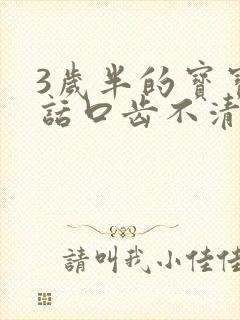 3歲半的寶寶
話口齒不清
請叫我小佳佳